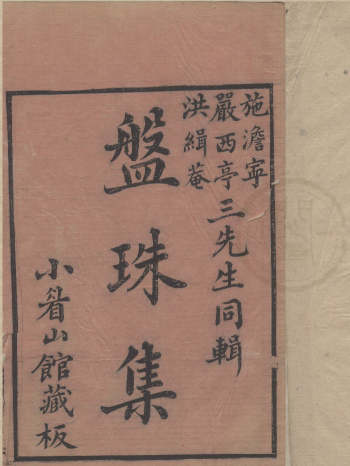 施澹寧
嚴西亭三先生同輯
洪緝菴
盤珠集
小眉山館藏板